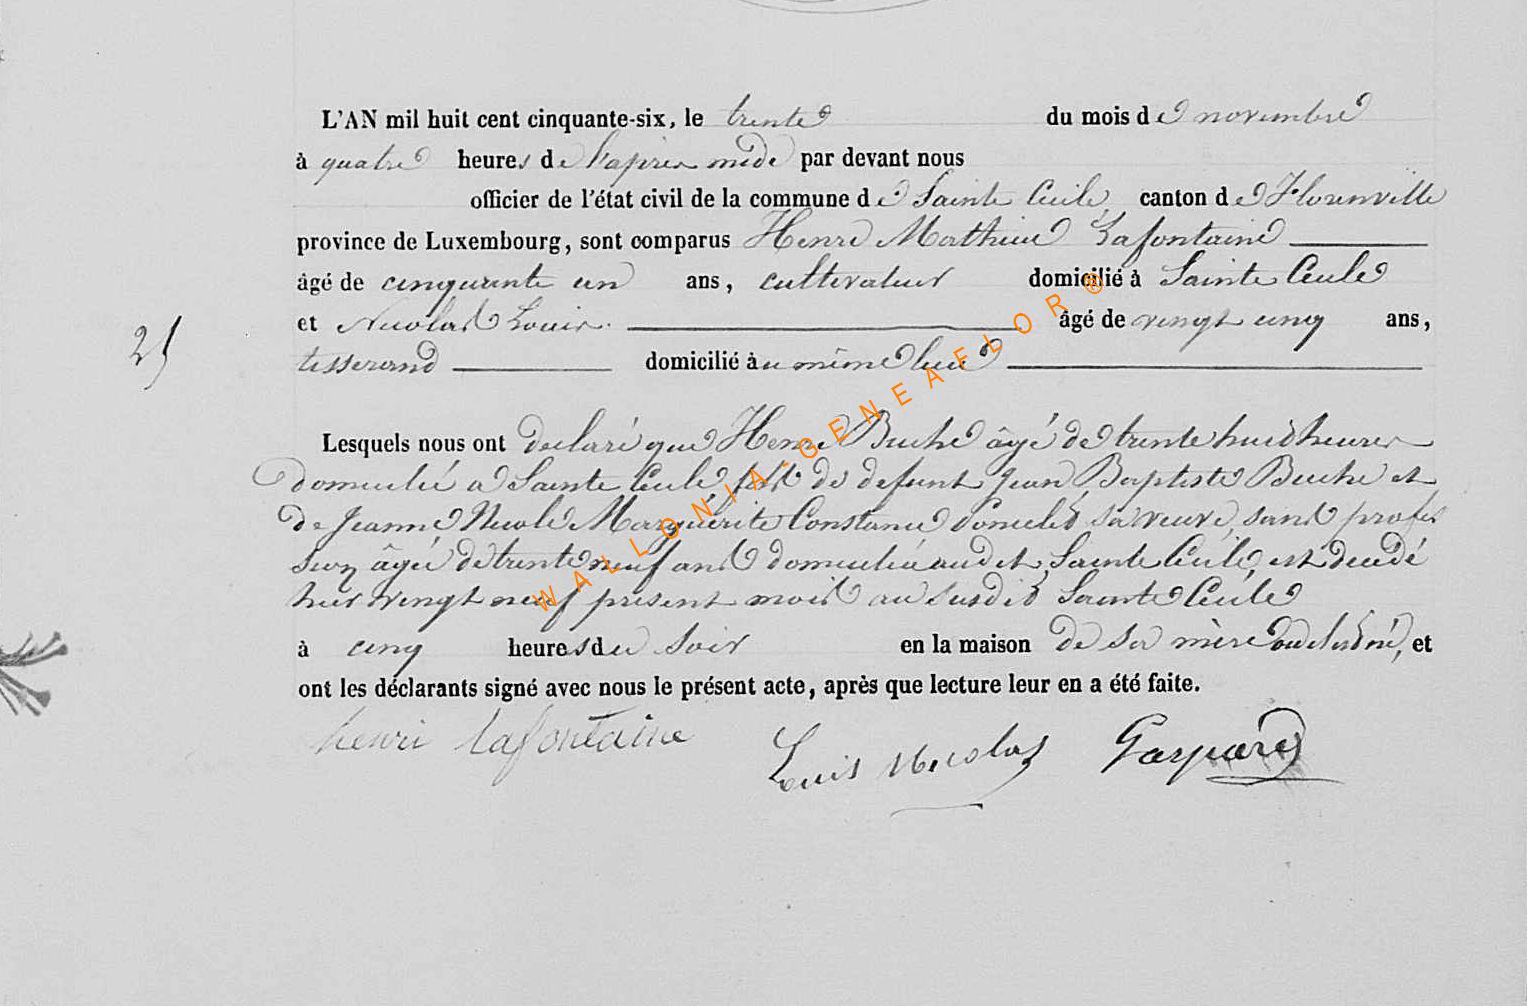 L'AN mil huit cent cinquante-six, le trente du mois de novembre
à quatre heures de l'après midi par devant nous
officier de l'état civil de la commune de Sainte Cécile canton de Florenville
province de Luxembourg, sont comparus Henri Mathieu Lafontaine
âgé de cinquante un ans, cultivateur domicilié à Sainte Cécile
et Nicolas Louis âgé de vingt cinq ans,
25
tisserand domicilié au même lieu
Lesquels nous ont declaré que Henri Buche âgé de trente huit heures
domicilié a Sainte Cécile fils de defunt Jean Baptiste Buche et
de Jeanne Nicole Marguérite Constance sa veuve, sans profes
sion âgée de trente neuf ans domiciliée audit Sainte Cécile, est decedé
hier vingt neuf présent mois au susdit Sainte Cécile
à cinq heures du soir en la maison de sa mère, et
ont les déclarants signé avec nous le présent acte, après que lecture leur en a été faite.
henri lafontaine Louis Nicolas Gaspard
WALLONIA-GENEAFLOR®